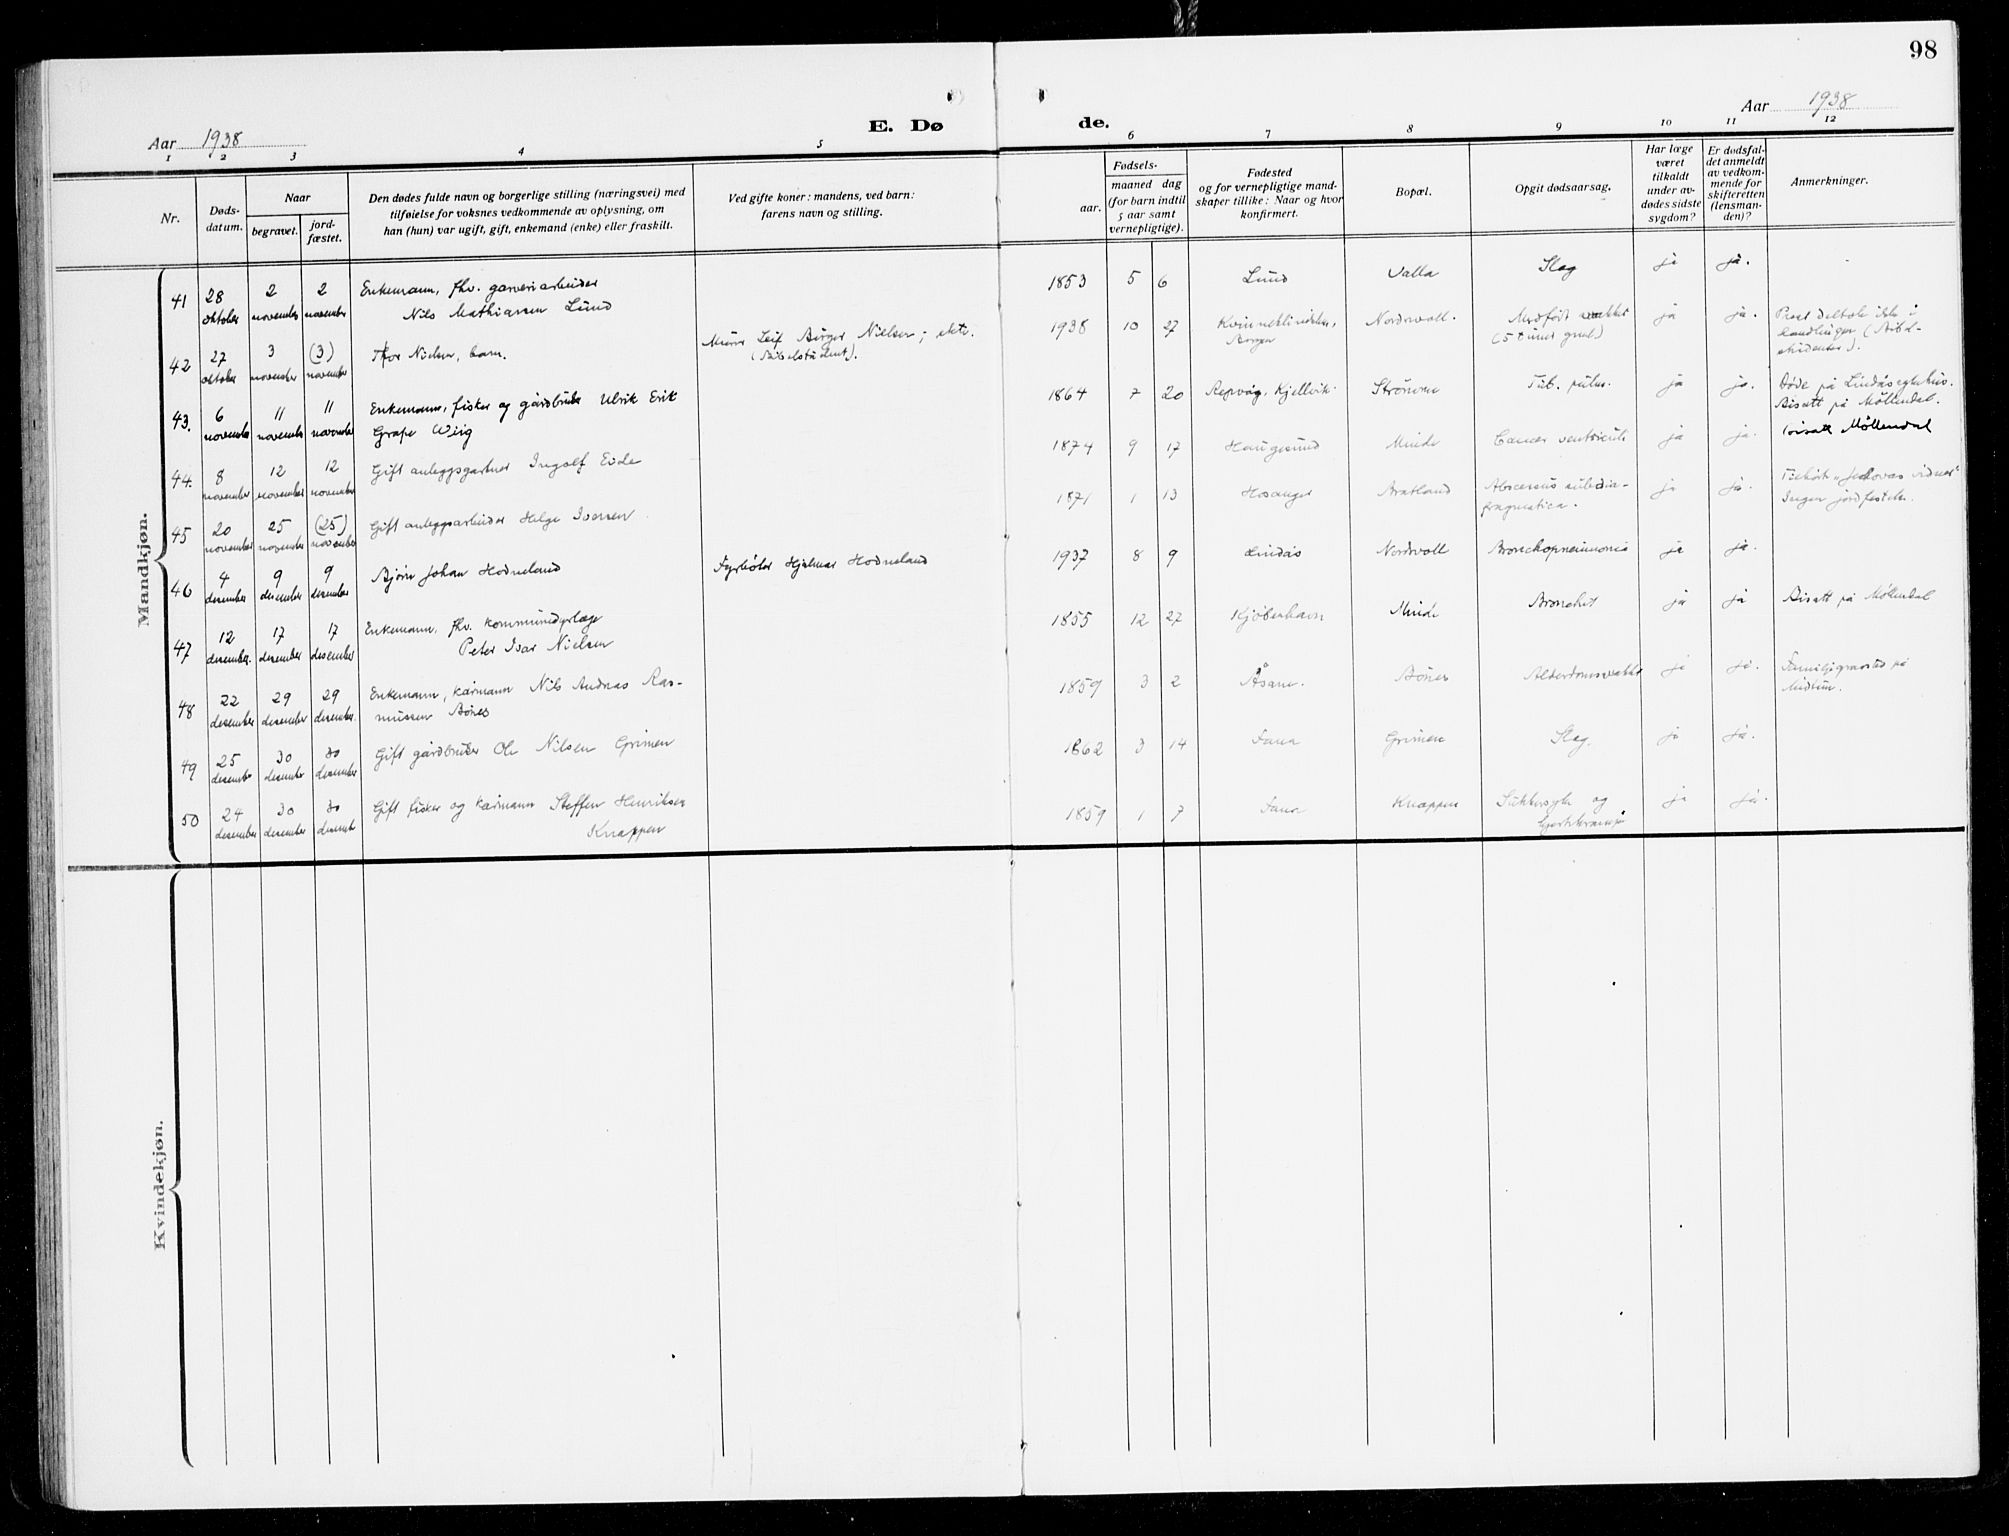 98
Aar 1938
Aar 1938
E. Dø
de.
1 2 3 4 5 6 7 8 9 10 11 12
Nr.
Døds-
datum.
Naar
begravet.
jord-
fæstet.
Den dødes fulde navn og borgerlige stilling (næringsvei) med
tilføielse for voksnes vedkommende av oplysning, om
han (hun) var ugift, gift, enkemand (enke) eller fraskilt.
Ved gifte koner: mandens, ved barn:
farens navn og stilling.
Fødsels-
aar.
maaned dag
(for barn indtil
5 aar samt
vernepligtige).
Fødested
og for vernepligtige mand-
skaper tillike: Naar og hvor
konfirmert.
Bopæl.
Opgit dødsaarsag.
Har læge
været
tilkaldt
under av-
dødes sidste
sygdom?
Er dødsfal-
det anmeldt
av vedkom-
mende for
skifteretten
(lensman-
den)?
Anmerkninger.
Mandkjøn.
41 28 oktober 2 november 2 november Enkemann, fhv. garveriarbeider
Nils Mathiassen Lund 1853 5 6 Lund Valla Slag ja ja.
42 27 oktober 3 november (3) november Thor Nielsen, barn. Murer Leif Birger Nielsen; ekte.
(Bibelstudent). 1938 10 27 Kvinneklinikken, Bergen Nordvoll. Medfødt (5 ja ja. Prest deltok ikke i
handlinger (Bibel-
studenter).
43. 6 november 11 november 11 november Enkemann, fisker og gårdbruker Ulrik Erik
Grape Wiig 1864 7 20 Repvåg, Kjellvik Strønene Tub. pulm. ja ja. Døde på Lindås sykehus.
Bisatt på Møllendal.
44. 8 november 12 november 12 november Gift anleggsgartner Ingolf Eide 1874 9 17 Haugesund Minde Cancer ventriculi ja ja. bisatt Møllendal
45 20 november 25 november (25) november Gift anleggsarbeider Helge Iversen 1871 1 13 Hosanger Bratland Abscessus subdia-
fragmatica. ja ja. Tilhørte "Jehovas vidner"
Ingen jordfestelse.
46 4 desember 9 desember 9 desember Bjørn Johan Hodneland Fyrbøter Hjalmar Hodneland 1937 8 9 Lindås Nordvoll Bronchopneumonia ja ja.
47 12 desember. 17 desember 17 desember Enkemann, fhv. kommunedyrlæge
Peter Ivar Nielsen 1855 12 27 Kjøbenhavn Minde Bronchit ja ja Bisatt på Møllendal
48 22 desember 29 desember 29 desember. Enkemann, kårmann Nils Andreas Ras-
mussen Bønes 1859 3 2 Åsane. Bønes Alderdomssvakhet ja ja. Familiegravsted på
Midtun.
49 25 desember 30 desember 30 desember Gift gårdbruker Ole Nilsen Grimen 1862 3 14 Fana Grimen Slag. ja ja.
50 24 desember 30 desember 30 desember Gift fisker og kårmann Steffen Henriksen
Knappen 1859 1 7 Fana Knappen Sukkersyke og ja ja.
Kvindekjøn.